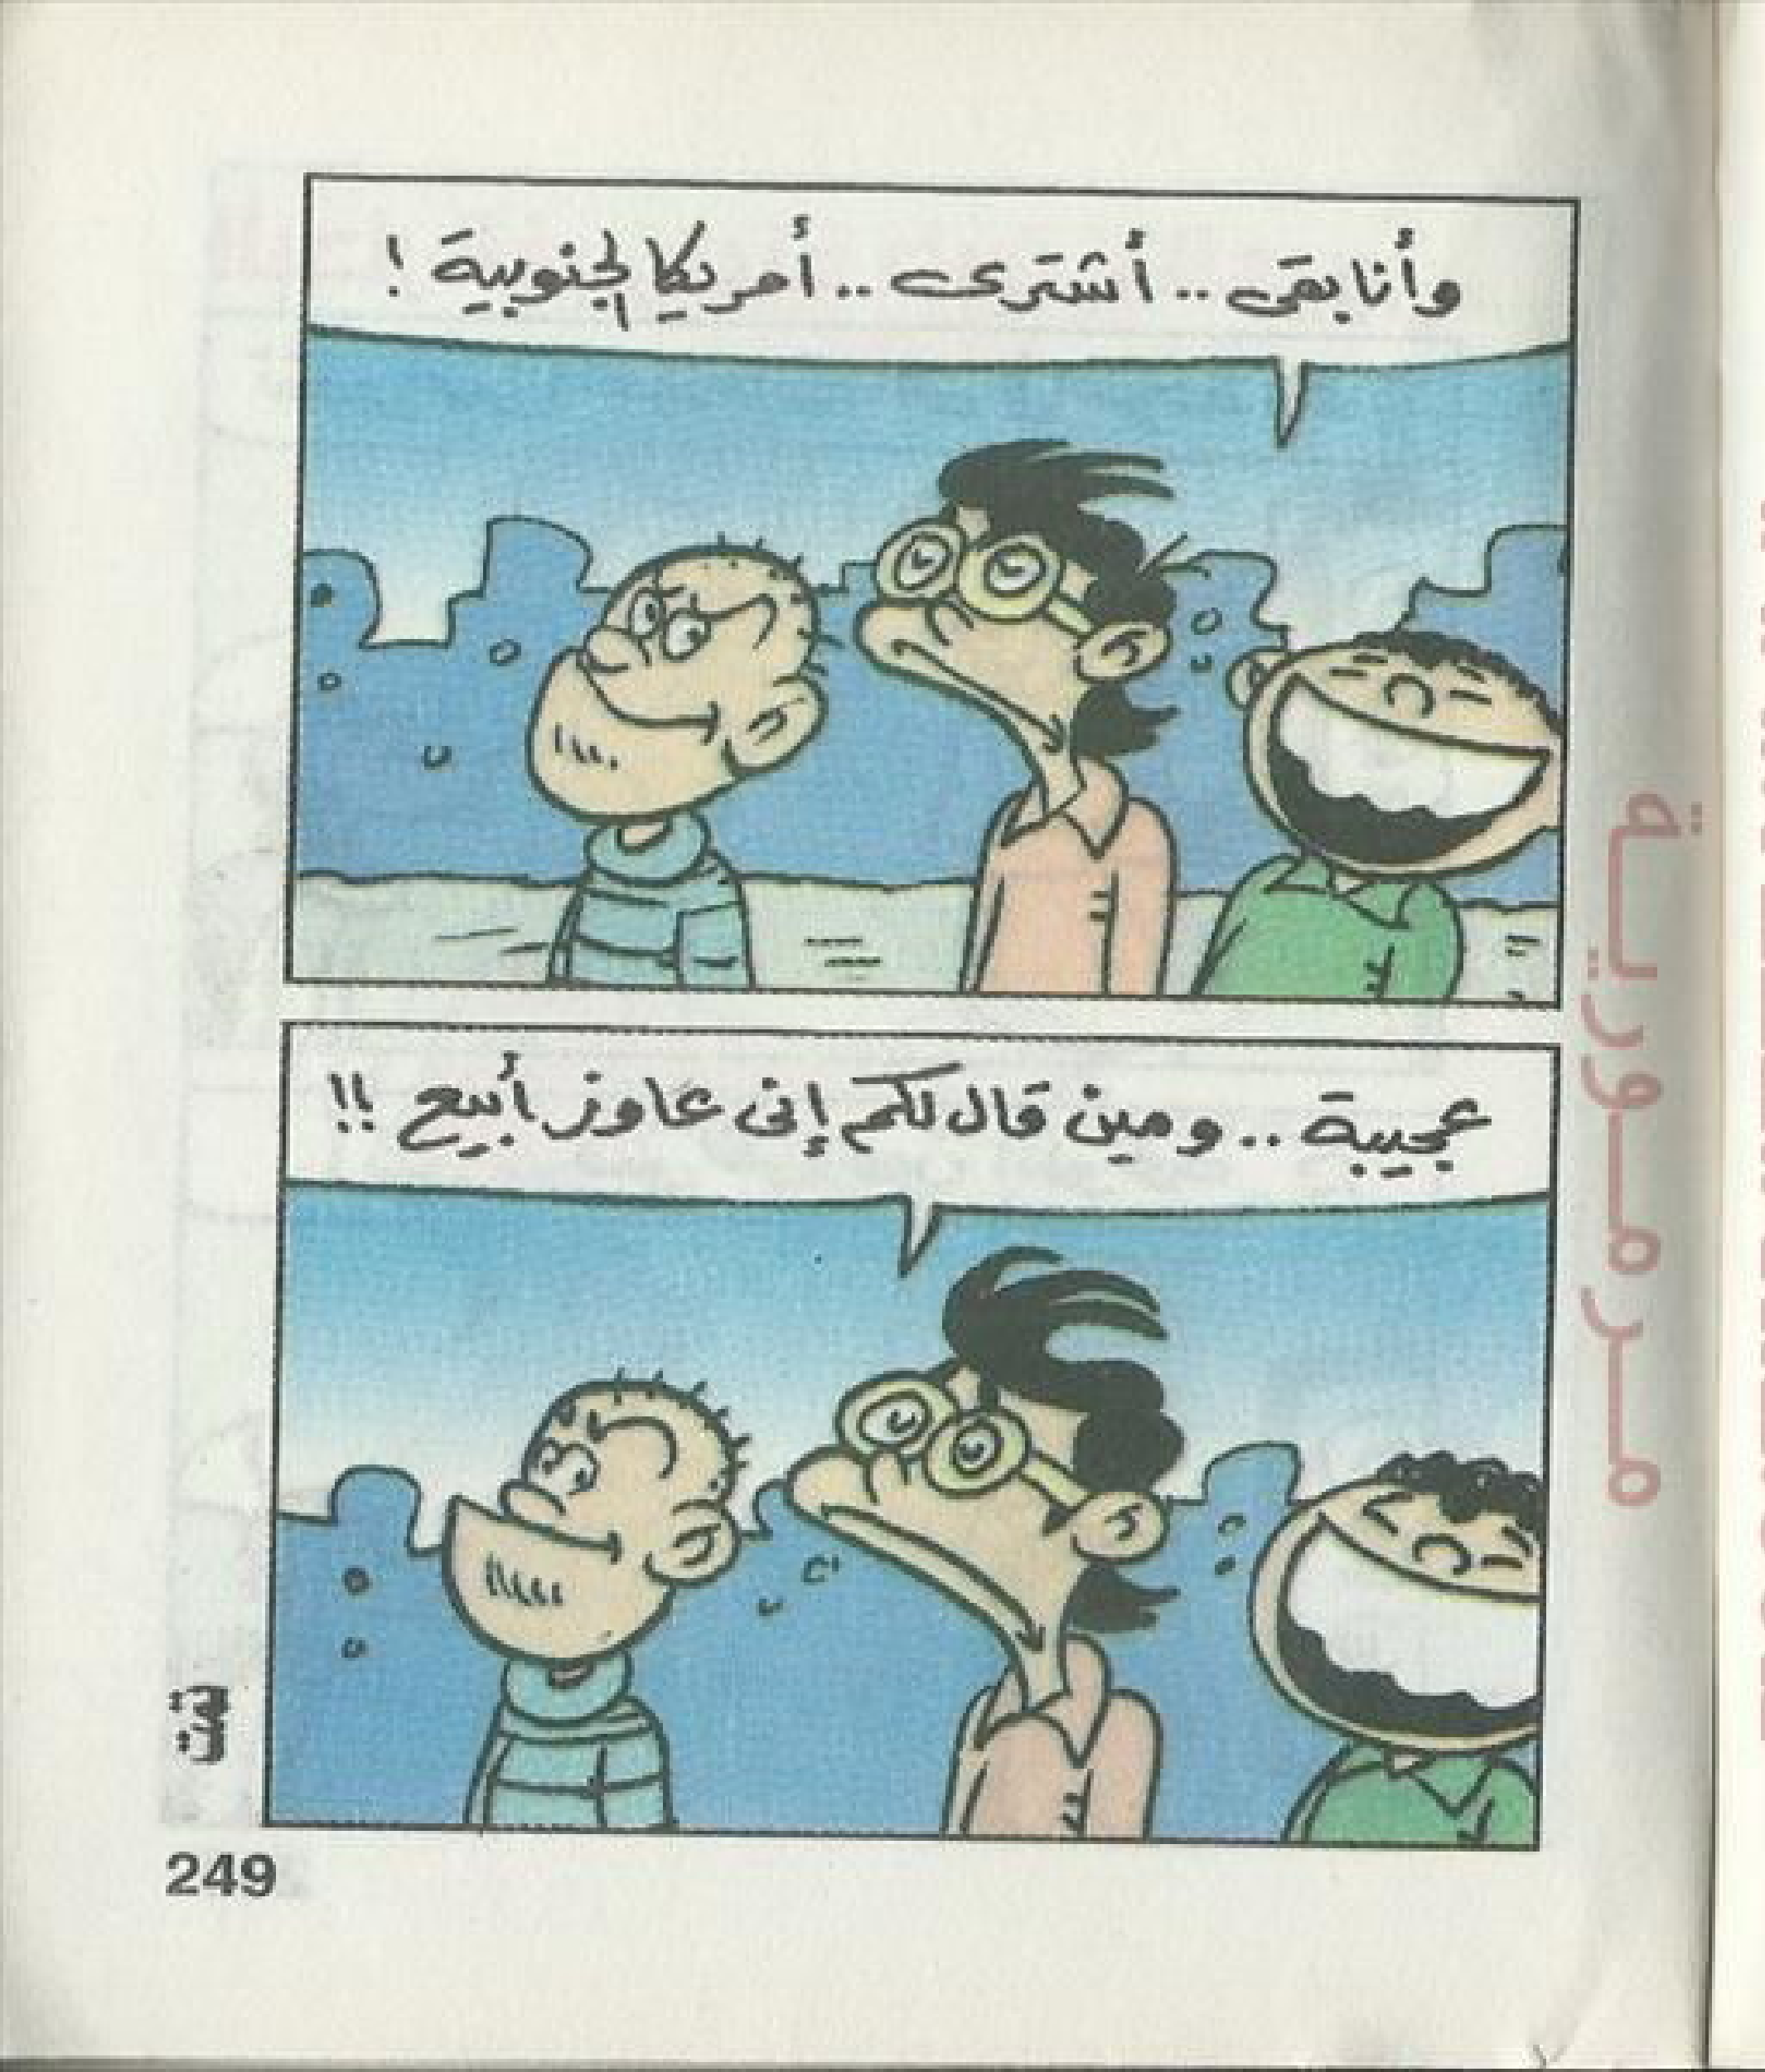 وأنا بقى .. أشترى .. أمريكا الجنوبية !
عجيبة .. ومين قال لكم إنى عاوز أبيع !!
مرمورية
تمت
249